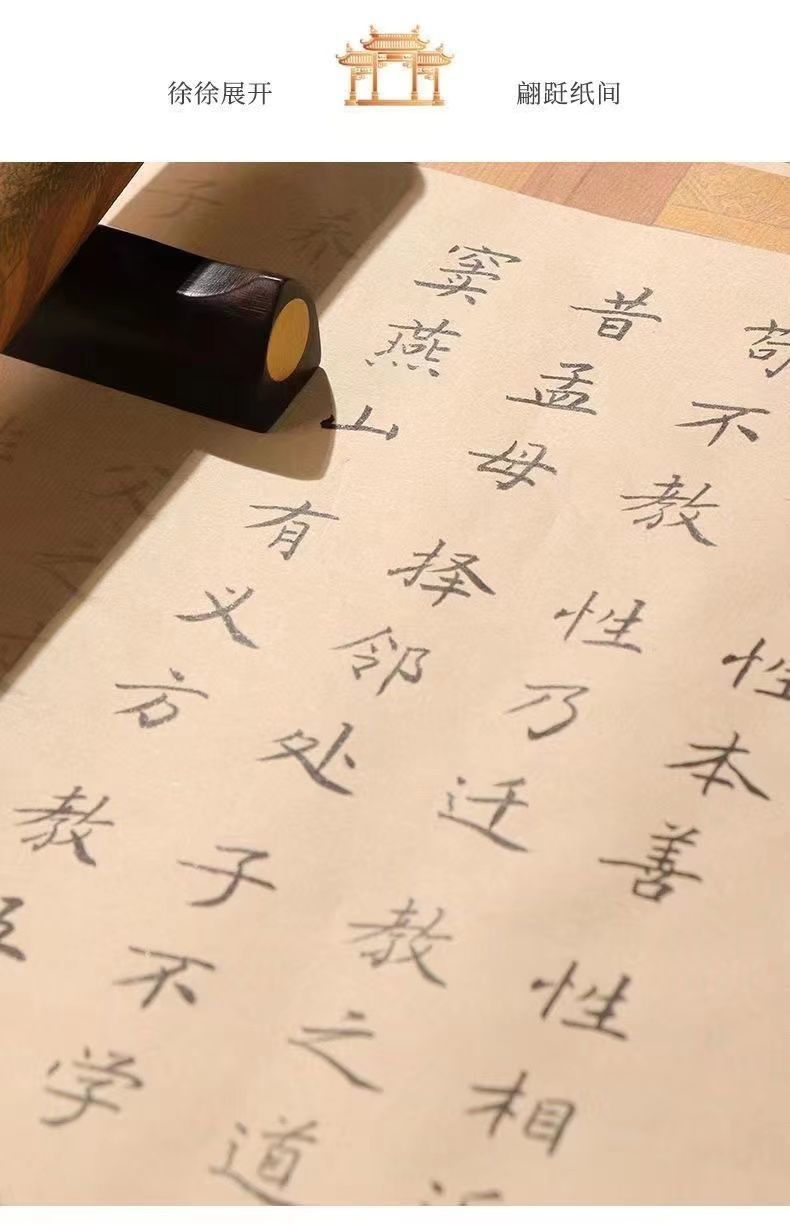 徐徐展开
翩跹纸间
性本善性相
苟不教性乃迁教之道
昔孟母择邻处子不学
窦燕山有义方教五